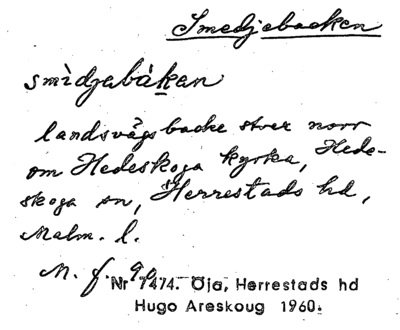 Smedjebacken
smìdjabákan
landsvägsbacke strax norr
om Hedeskoga kyrka, Hede-
skoga sn, Herrestads hd,
Malm. l.
M. f. 90
Nr 7474. Öja, Herrestads hd
Hugo Areskoug 1960.